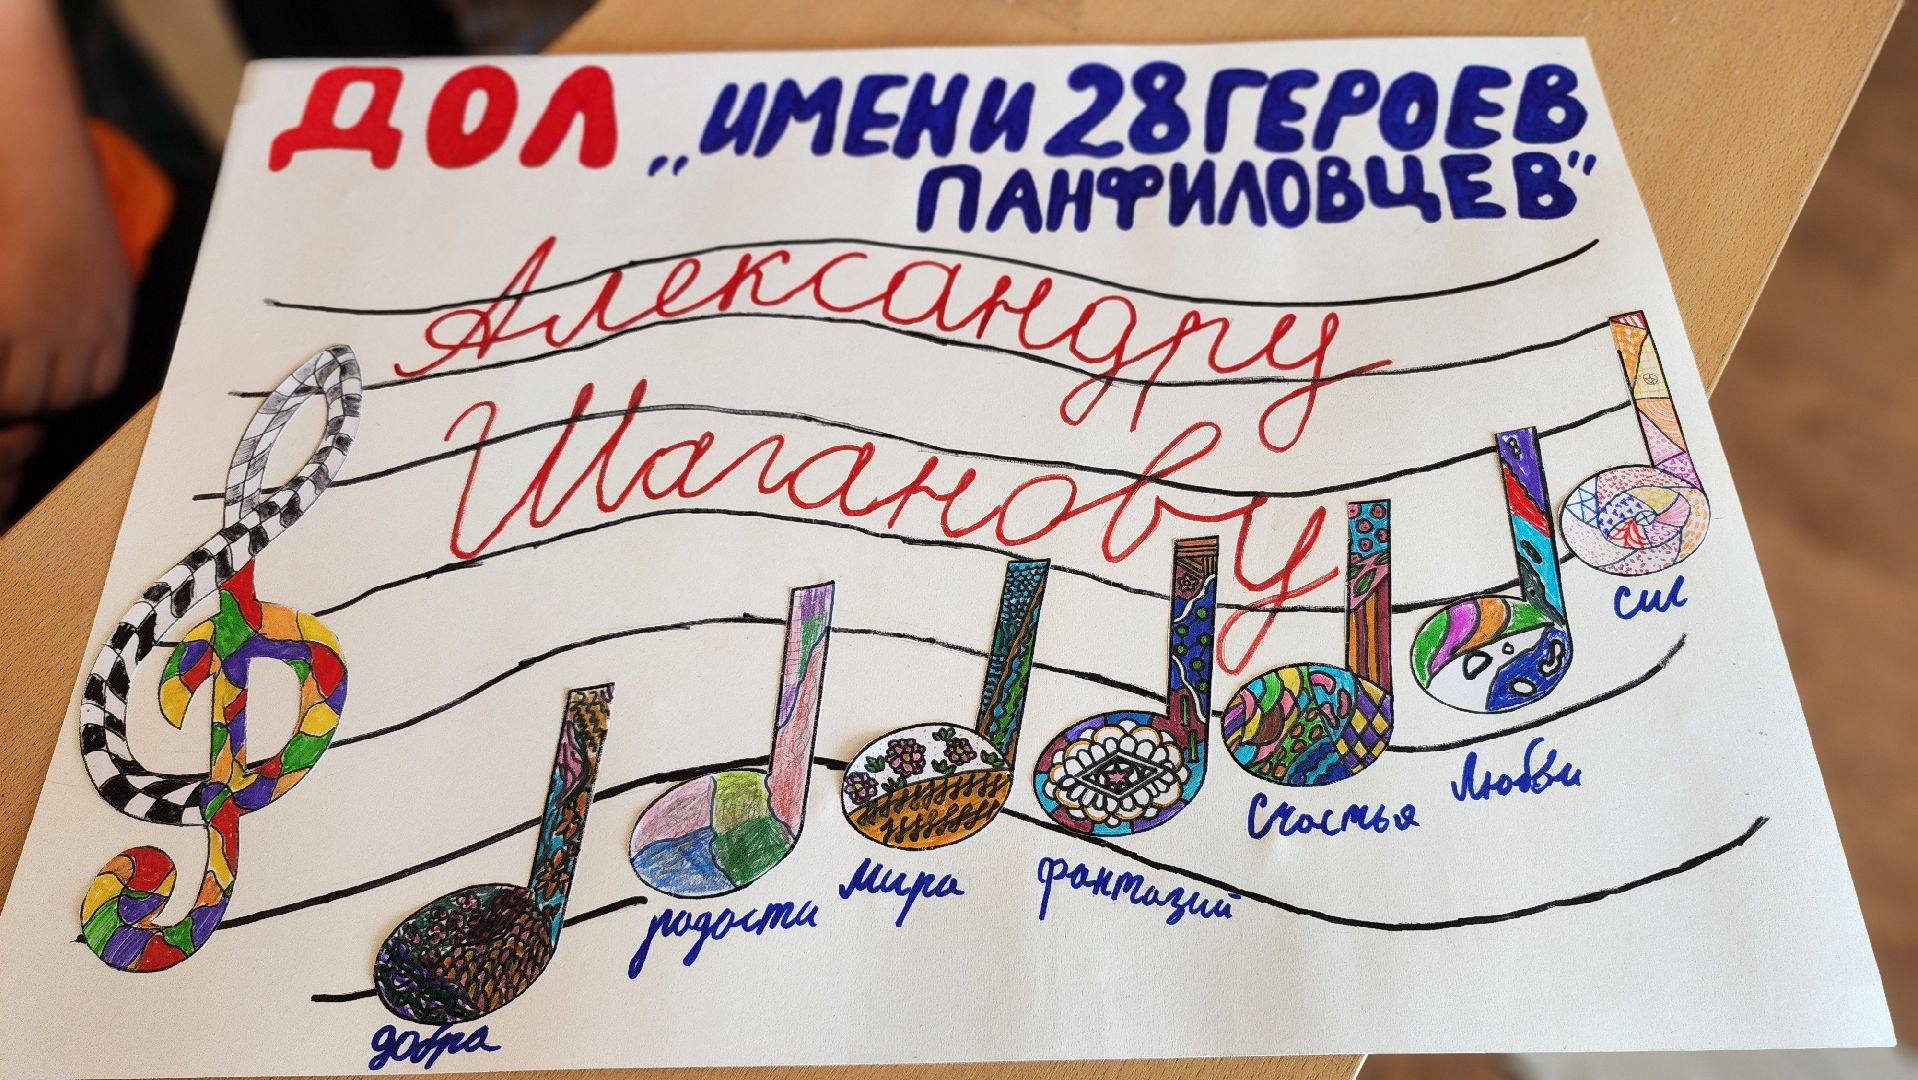 ДОЛ „ИМЕНИ 28 ГЕРОЕВ
ПАНФИЛОВЦЕВ"
Александру
Шаганову
добра
радости
мира
фантазий
Счастья
Любви
сил